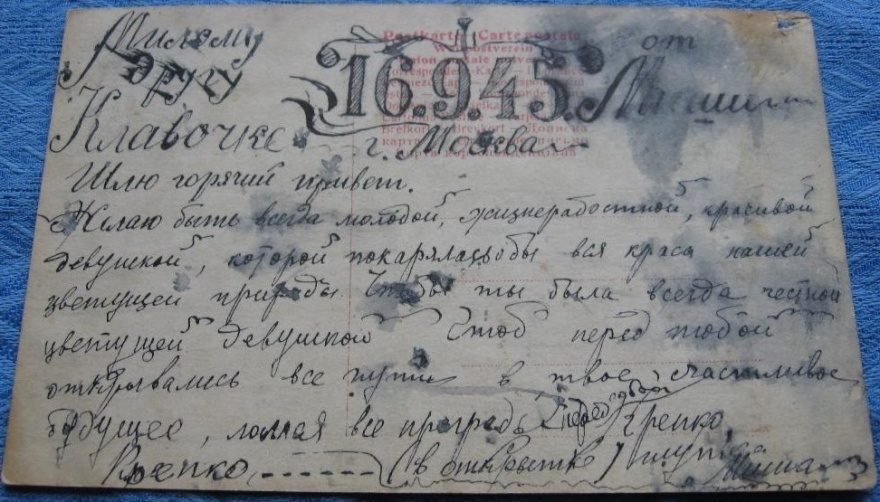 Postkarte Carte postale
Weltpostverein
Милому
другу
Клавочке
16.9.45. от Миши
г. Москва
Шлю горячий привет.
Желаю быть всегда молодой, жизнерадостной, красивой
девушкой, которой покарялась бы вся краса нашей
цветущей природы. Чтобы ты была всегда честной
цветущей девушкой Чтоб перед тобой
открывались все пути в твое счастливое
будущее, ломая все преграды перед собой Крепко,
Крепко, ------ (в открытке) Миша